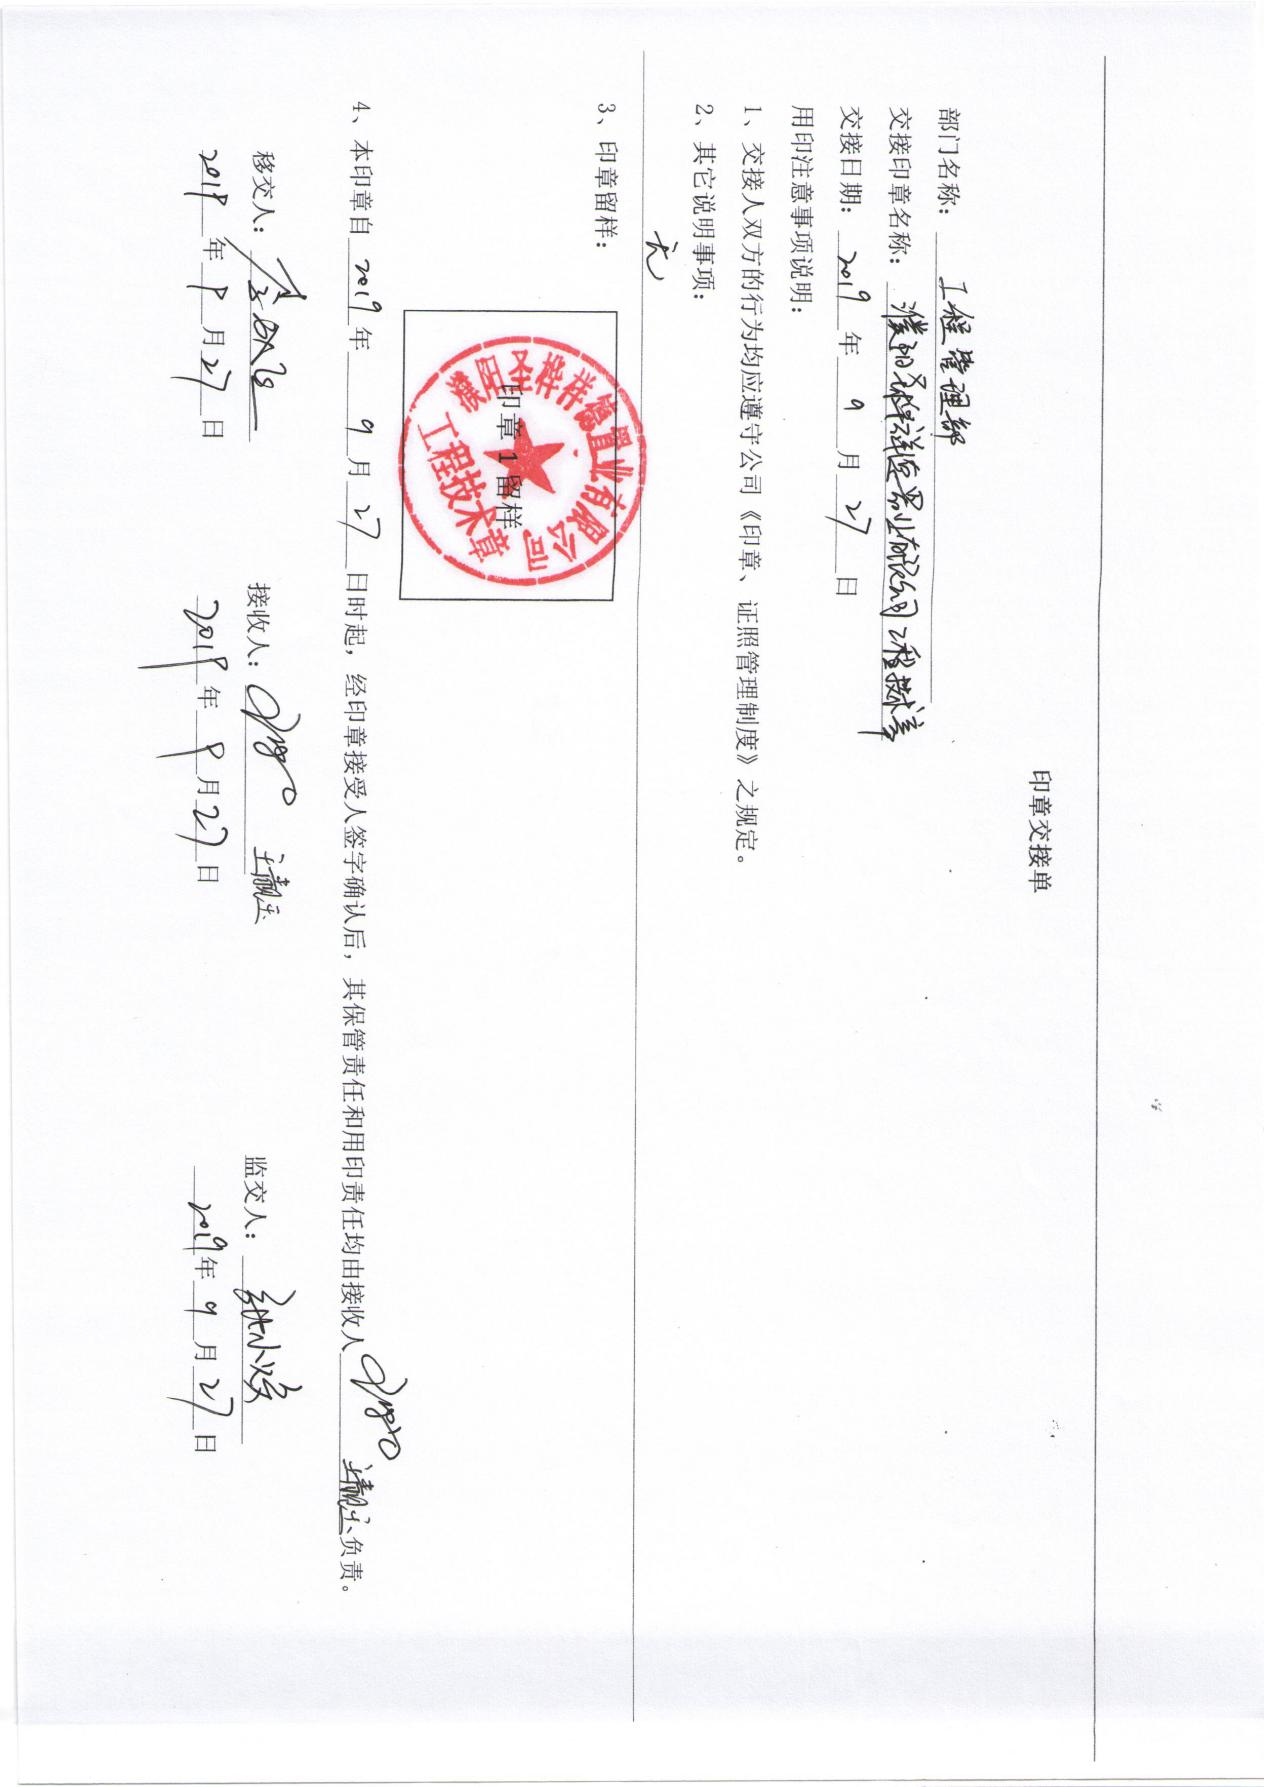 印章交接单
部门名称： 工程管理部
交接印章名称： 濮阳圣桦祥德置业有限公司工程技术章
交接日期： 2019 年 9 月 27 日
用印注意事项说明：
1、交接人双方的行为均应遵守公司《印章、证照管理制度》之规定。
2、其它说明事项：
无
3、印章留样：
濮阳圣桦祥德置业有限公司
印章 1 留样
工程技术章
4、本印章自 2019 年 9 月 27 日时起，经印章接受人签字确认后，其保管责任和用印责任均由接收人 负责。
移交人： 接收人： 监交人：
2019 年 9 月 27 日 2019 年 9 月 27 日 2019 年 9 月 27 日